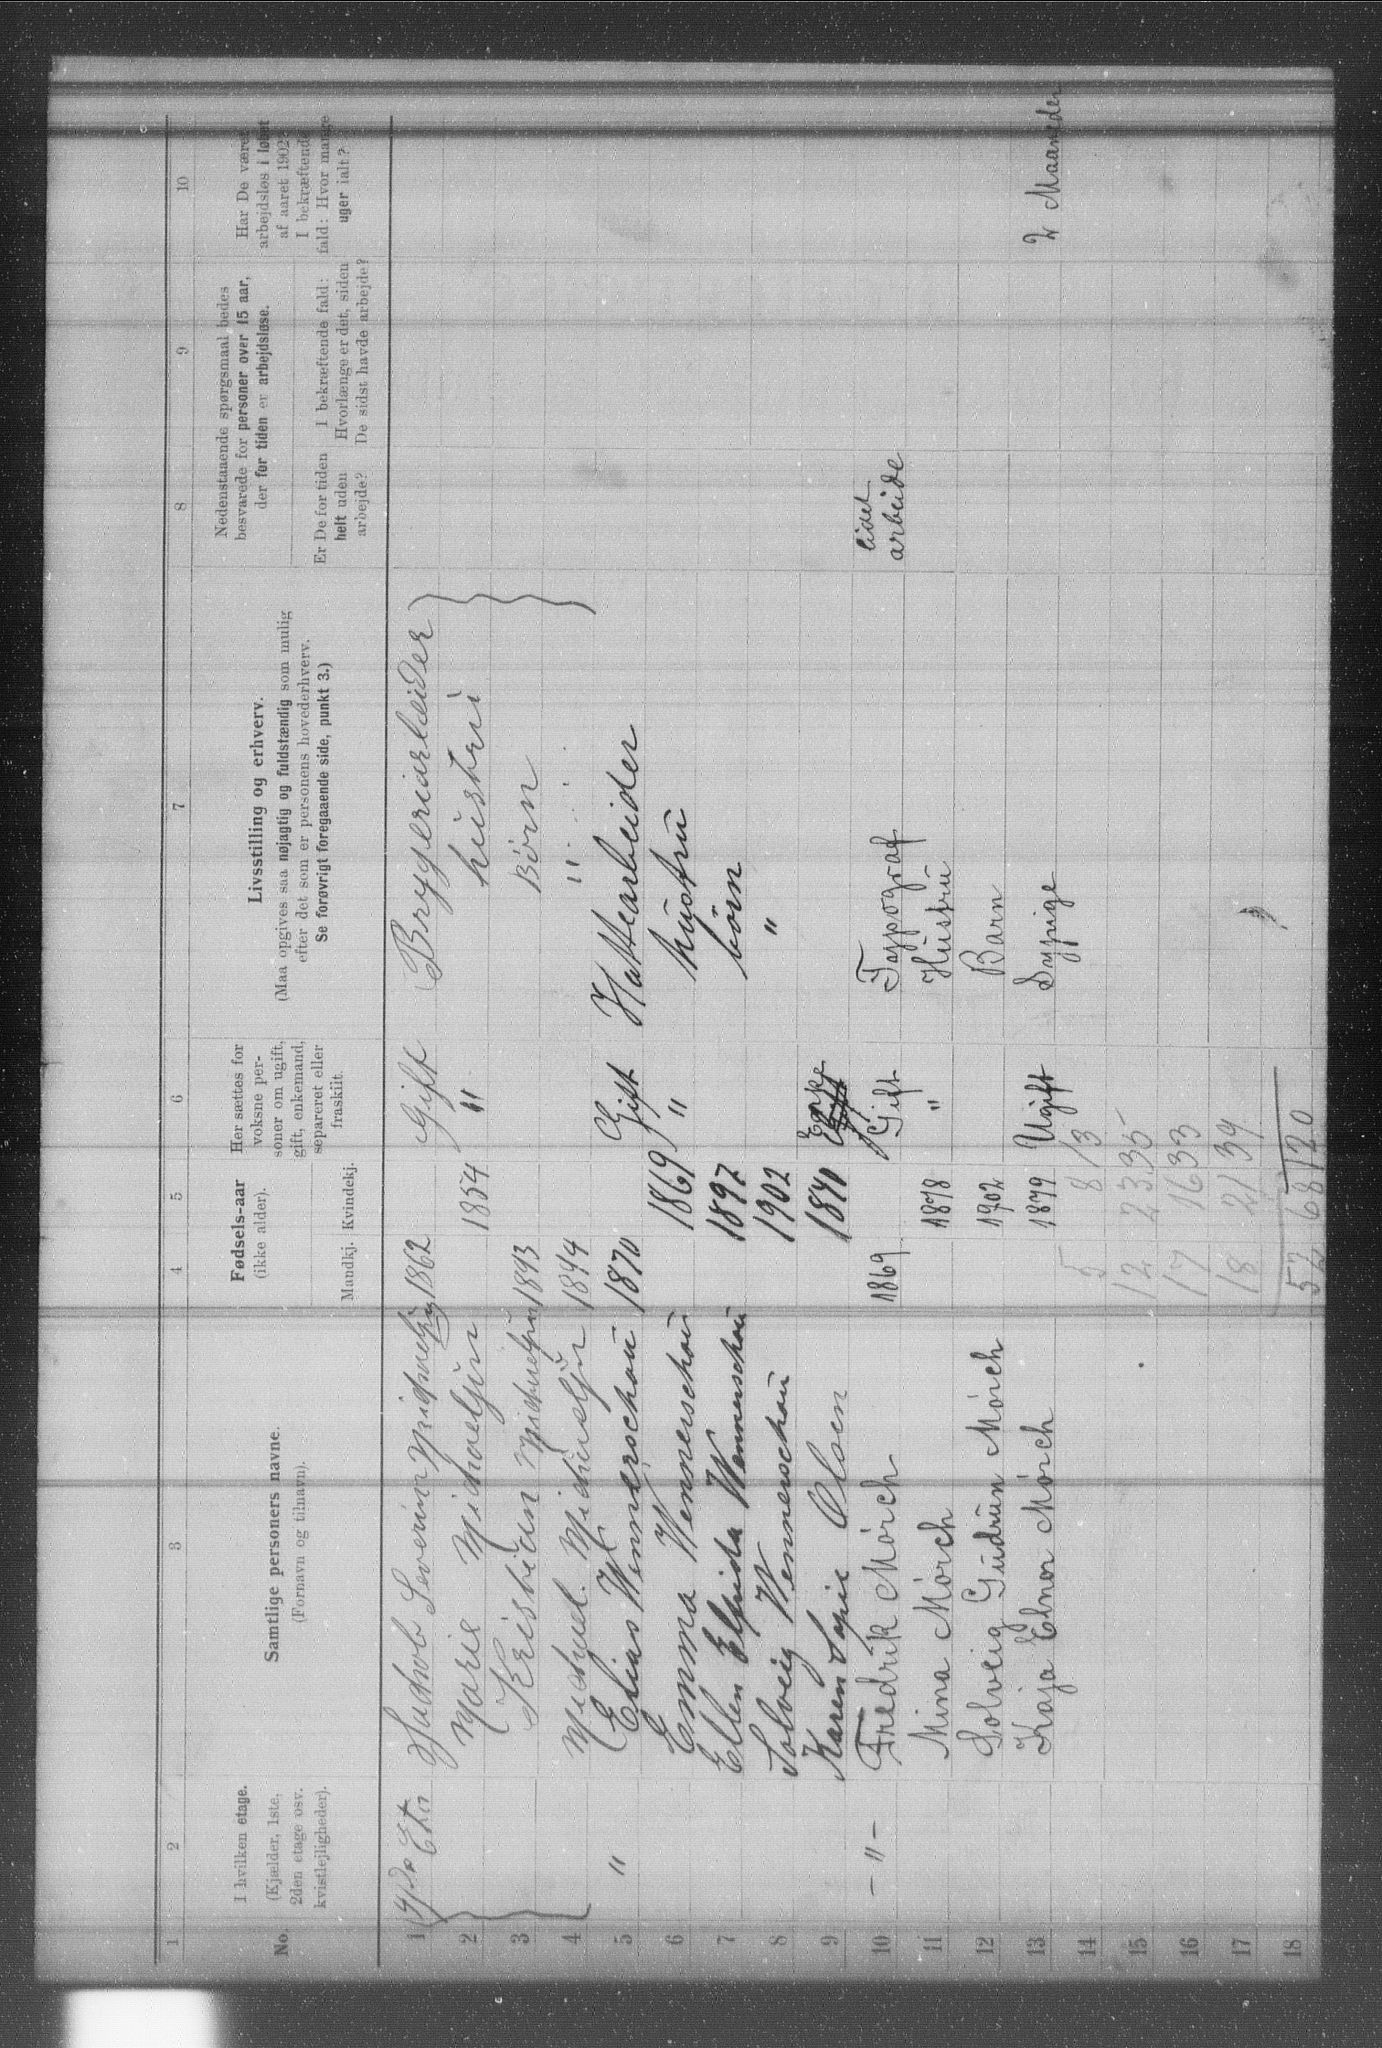 1 2 3 4 5 6 7 8 9 10
No.
I hvilken etage.
(Kjælder, 1ste,
2den etage osv.
kvistlejligheder).
Samtlige personers navne.
(Fornavn og tilnavn).
Fødsels-aar
(ikke alder).
Mandkj. Kvindekj.
Her sættes for
voksne per-
soner om ugift,
gift, enkemand,
separeret eller
fraskilt.
Livsstilling og erhverv.
(Maa opgives saa nøjagtig og fuldstændig som mulig
efter det som er personens hovederhverv.
Se forøvrigt foregaaende side, punkt 3.)
Nedenstaaende spørgsmaal bedes
besvarede for personer over 15 aar,
der for tiden er arbejdsløse.
Er De for tiden
helt uden
arbejde?
I bekræftende fald:
Hvorlænge er det, siden
De sidst havde arbejde?
Har De været
arbejdsløs i løbet
af aaret 1902?
I bekræftende
fald: Hvor mange
uger ialt?
1 Severin 1862 Gift Bryggeriarbeider
2 Marie Michaeljsen 1854 " hustru
3 Kristian Michaeljsen 1893 Børn
4 Michael Michaeljsen 1894 "
5 " Elias Wennerschou 1870 Gift Hattearbeider
6 Emma Wennerschou 1869 " hustru
7 Ellen Elfrida Wennerschou 1897 børn
8 Solveig Wennerschou 1902 "
9 Karen Sofie Olsen 1840 Enke
10 - " - Fredrik Mörch 1869 Gift Typograf lidet arbeide
11 Mina Mörch 1878 " Hustru
12 Solveig Gudrun Mörch 1902 Barn
13 Kaja Elnor Mörch 1879 Ugift Sypige 2 Maaneder
14 5 8 13
15 12 23 35
16 17 16 33
17 18 21 39
18 52 68 120